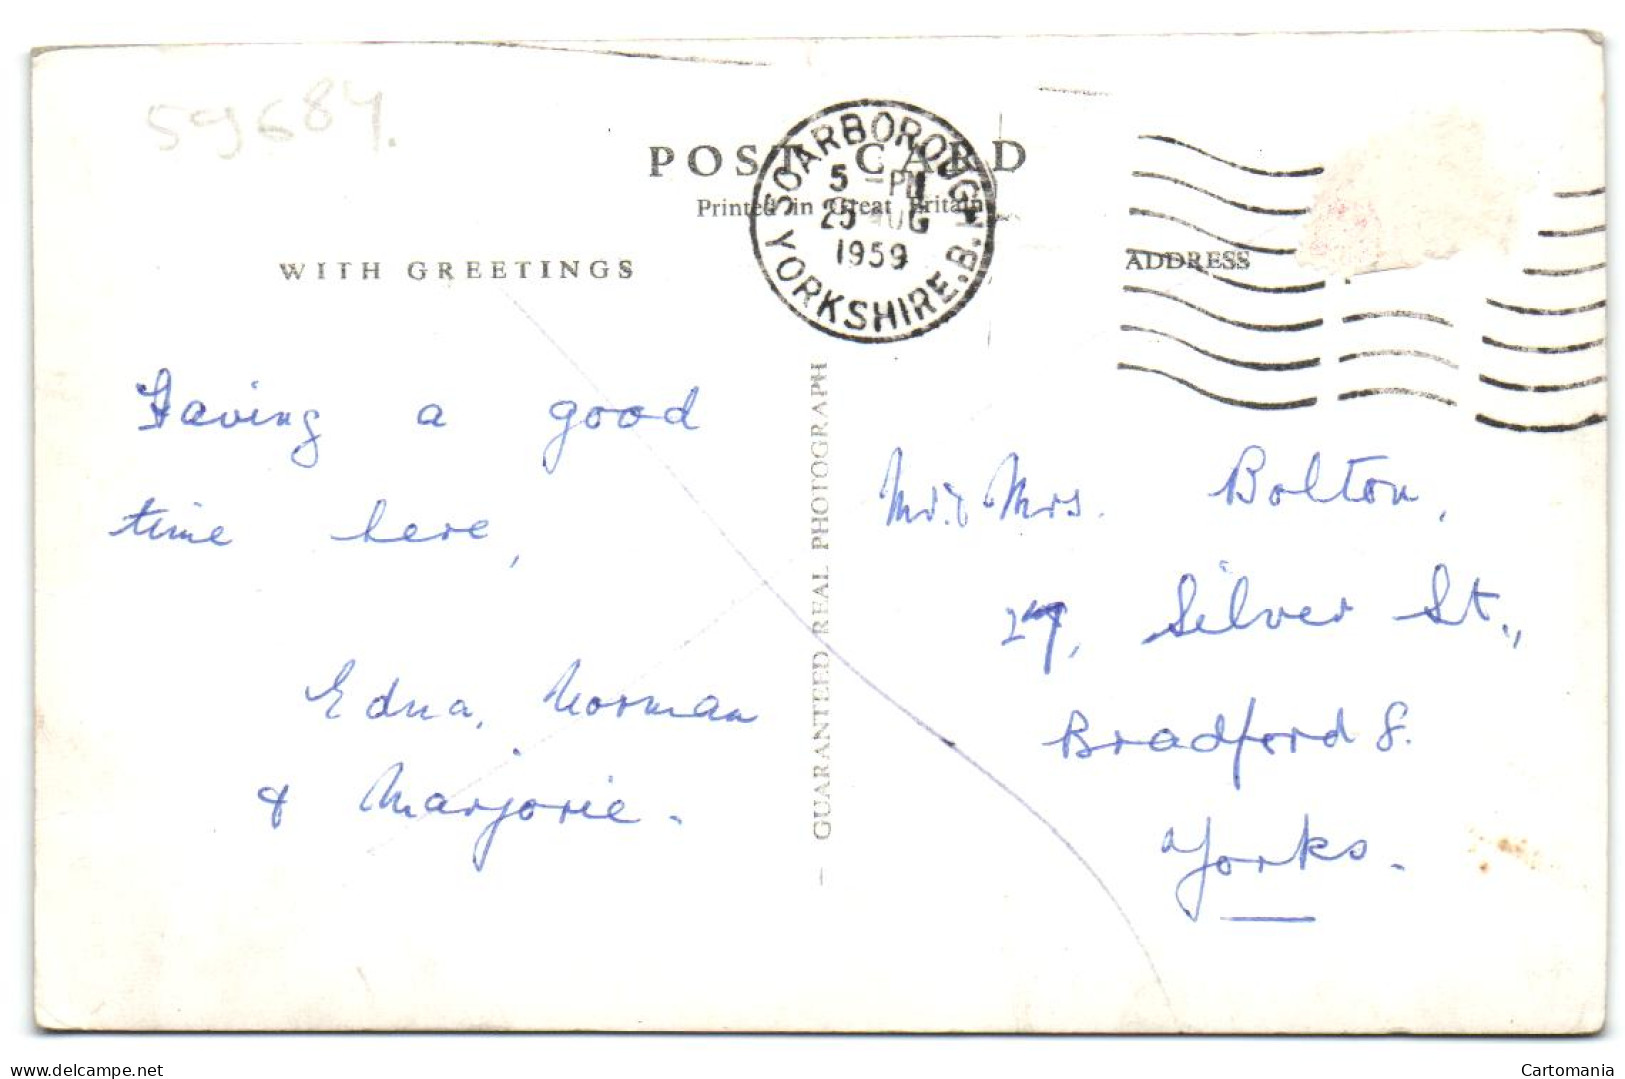 59684.
POST CARD
Printed in Great Britain
SCARBOROUGH
5 - PM
25 AUG
1959
YORKSHIRE. B.
WITH GREETINGS
ADDRESS
Having a good
time here,
Edna, Norman
& Marjorie.
GUARANTEED REAL PHOTOGRAPH
Mr. & Mrs. Bolton,
27, Silver St.,
Bradford 8.
Yorks.
www.delcampe.net
Cartomania